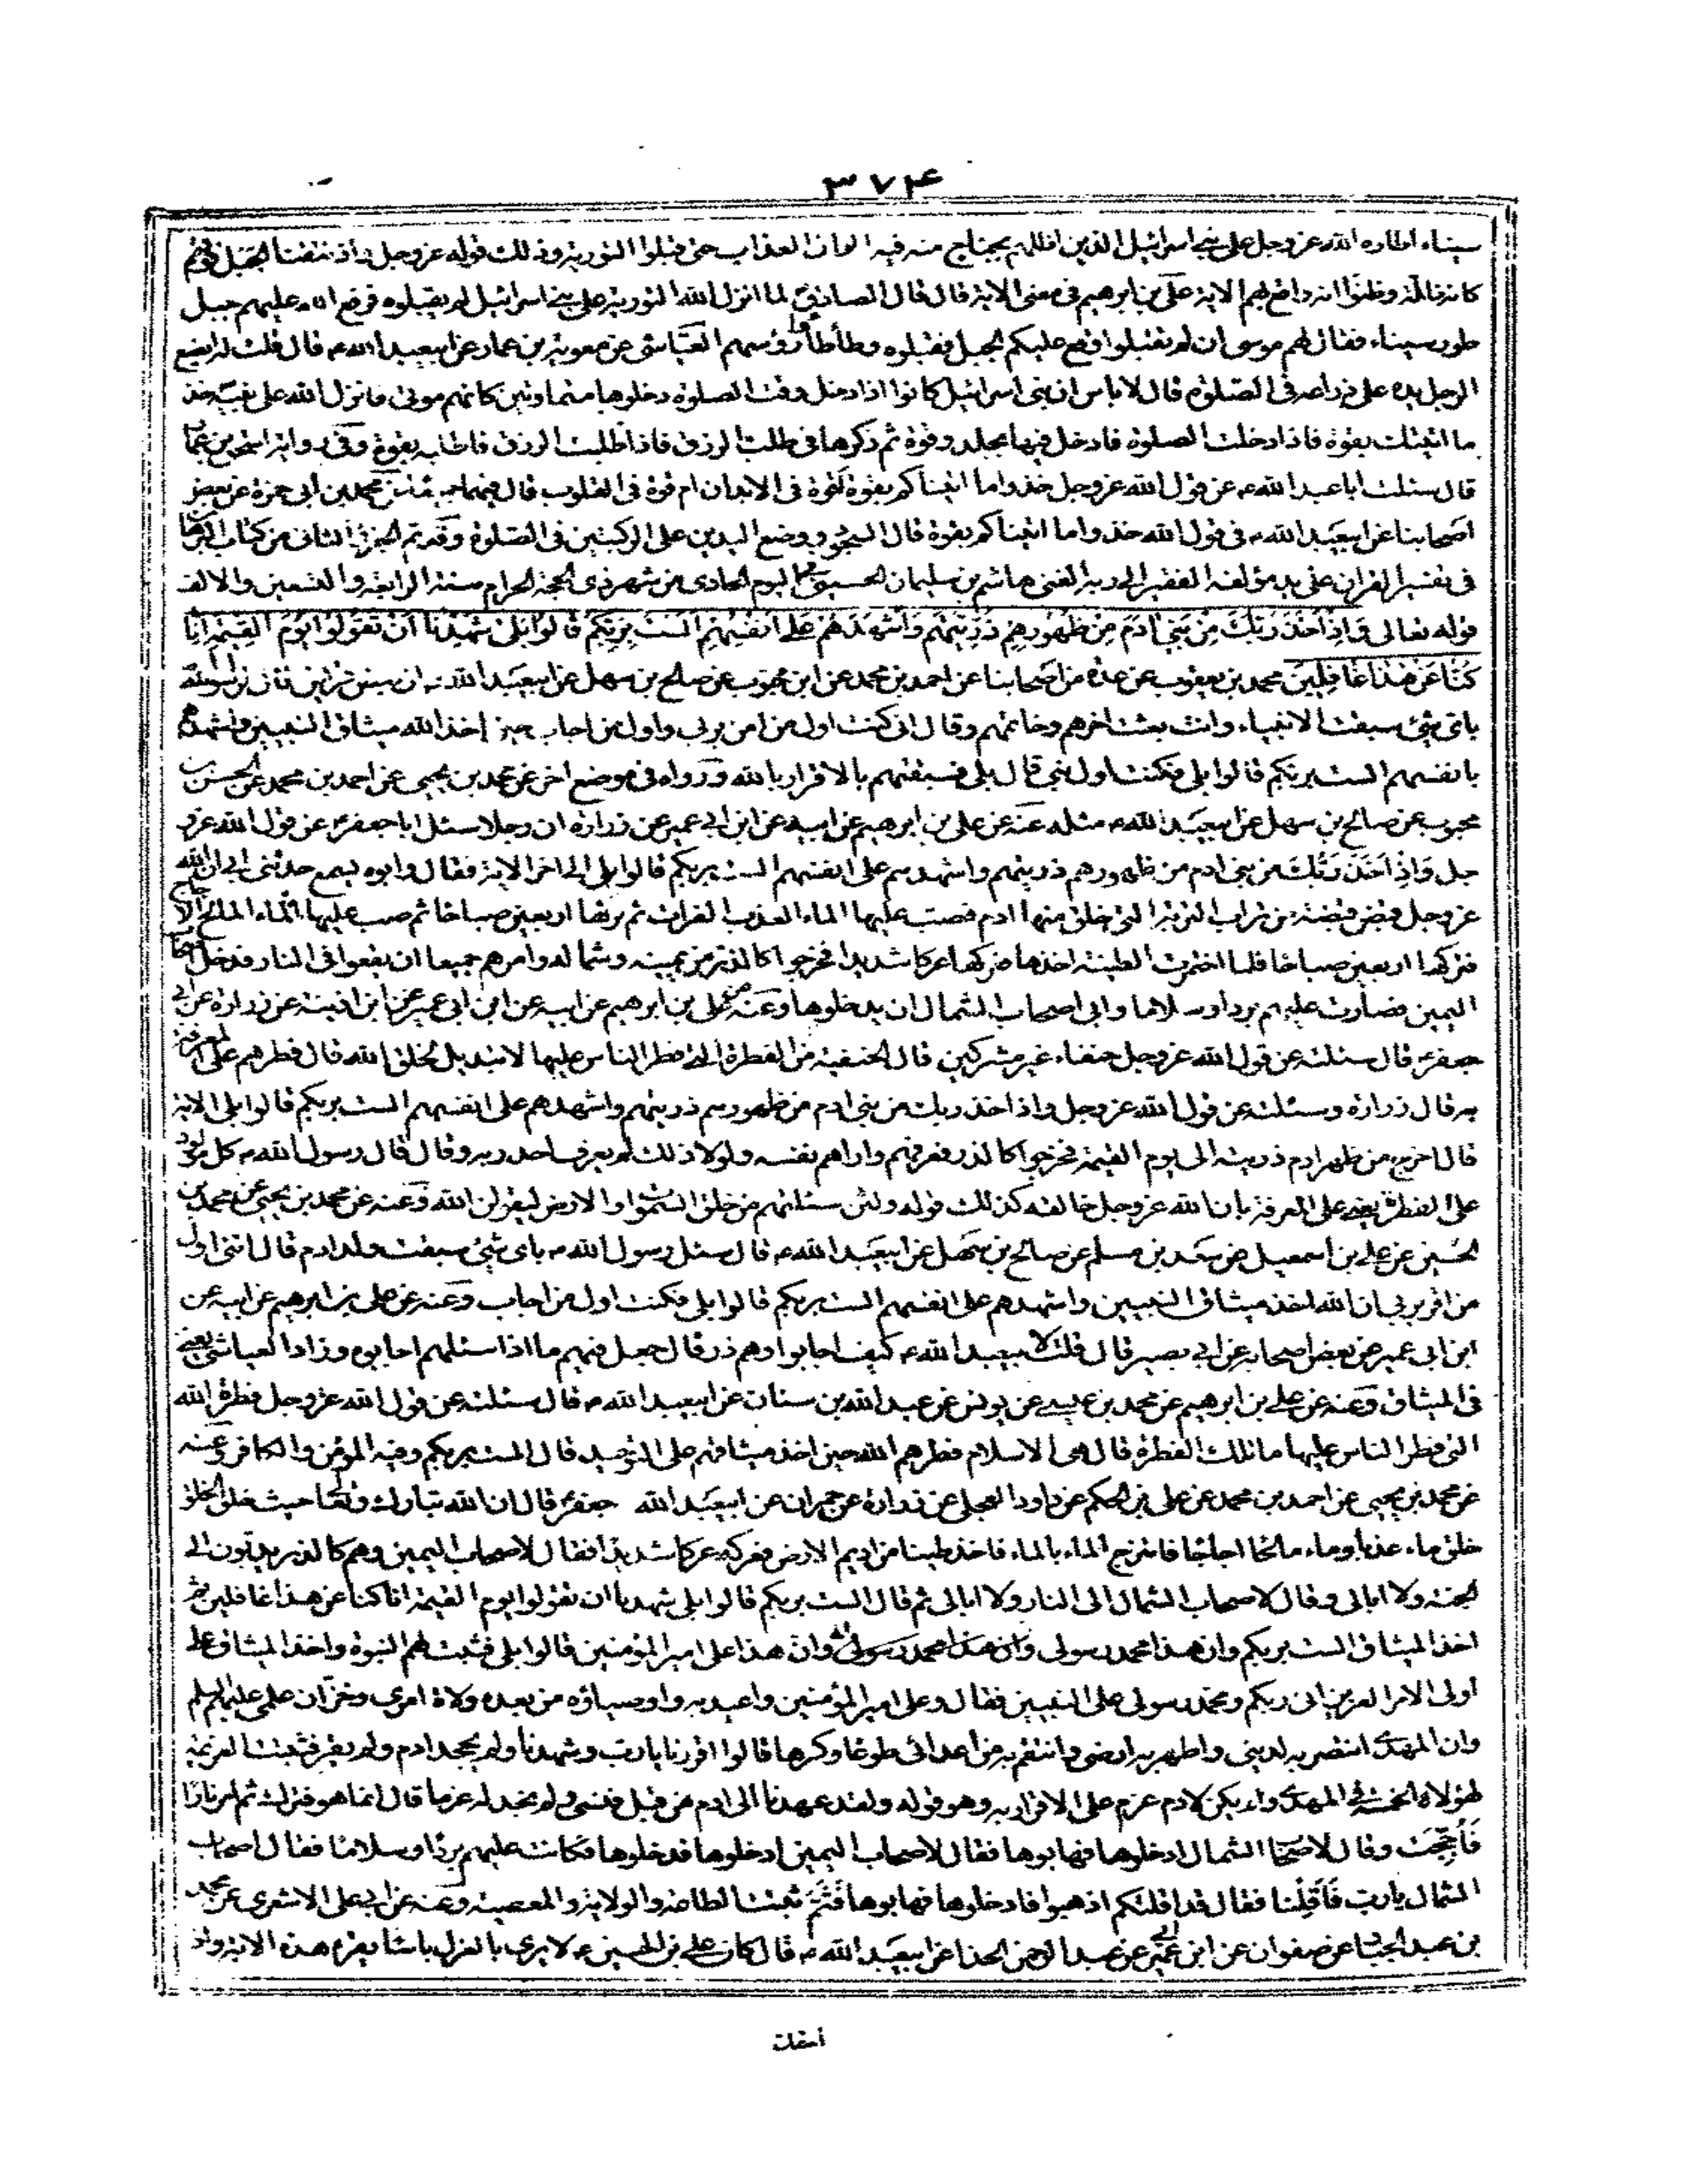 ٣٧۴
سيناء اطاره الله عز وجل على بنى اسرائيل الذين اظلهم بجناح منه فيه الوان العذاب حتى قبلوا التورية وذلك قوله عز وجل واذ نتقنا الجبل فوقهم
كانه ظلة وظنوا انه واقع بهم الاية على بن ابرهيم فى معنى الاية قال قال الصادق لما انزل الله التورية على بنى اسرائيل لم يقبلوه فرفع الله عليهم جبل
طور سيناء فقال لهم موسى ان لم تقبلوا وقع عليكم الجبل فقبلوه وطأطأوا رؤسهم العياشى عن معوية بن عمار عن ابيعبد الله ع قال قلت له ايضع
الرجل يده على ذراعه فى الصلوة قال لا باس ان بنى اسرائيل كانوا اذا دخل وقت الصلوة دخلوها متماوتين كانهم موتى فانزل الله على نبيه خذ
ما اتيتك بقوة فاذا دخلت الصلوة فادخل فيها بجلد وقوة ثم ذكرها فى طلب الرزق فاذا طلبت الرزق فاطلبه بقوة وفى رواية اسحق بن عمار
قال سئلت ابا عبد الله ع عن قول الله عز وجل خذوا ما اتيناكم بقوة اقوة فى الابدان ام قوة فى القلوب قال فيهما جميعا عن محمد بن ابى حمزة عن بعض
اصحابنا عن ابيعبد الله ع فى قول الله خذوا ما اتيناكم بقوة قال السجود ووضع اليدين على الركبتين فى الصلوة وقد تم الجزء الثانى من كتاب البرهان
فى تفسير القران على يد مؤلفه الفقير الى ربه الغنى هاشم بن سليمان الحسينى اليوم الحادى من شهر ذى الحجة الحرام سنة الرابعة والتسعين والالف
قوله تعالى وَاِذْ اَخَذَ رَبُّكَ مِنْ بَنِى اٰدَمَ مِنْ ظُهُورِهِمْ ذُرِّيَّتَهُمْ وَاَشْهَدَهُمْ عَلٰى اَنْفُسِهِمْ اَلَسْتُ بِرَبِّكُمْ قَالُوا بَلٰى شَهِدْنَا اَنْ تَقُولُوا يَوْمَ الْقِيٰمَةِ اِنَّا
كُنَّا عَنْ هٰذَا غَافِلِينَ محمد بن يعقوب عن عدة من اصحابنا عن احمد بن محمد عن ابن محبوب عن صالح بن سهل عن ابيعبد الله ع ان بعض قريش قال لرسول الله
باى شئ سبقت الانبياء وانت بعثت اخرهم وخاتمهم وقال انى كنت اول من امن بربى واول من اجاب حيز اخذ الله ميثاق النبيين واشهدهم
بانفسهم الست بربكم قالوا بلى فكنت اول نبى قال بلى فسبقتهم بالاقرار بالله ورواه فى موضع اخر عن محمد بن يحيى عن احمد بن محمد عن الحسن بن
محبوب عن صالح بن سهل عن ابيعبد الله ع مثله عنه عن على بن ابرهيم عن ابيه عن ابن ابى عمير عن زرارة ان رجلا سئل ابا جعفر ع عن قول الله عز و
جل وَاِذْ اَخَذَ رَبُّكَ من بنى ادم من ظهورهم ذريتهم واشهدهم على انفسهم الست بربكم قالوا بلى الى اخر الاية فقال وابوه يسمع حدثنى ابى ان الله
عز وجل قبض قبضة من تراب التربة التى خلق منها ادم فصب عليها الماء العذب الفرات ثم تركها اربعين صباحا ثم صب عليها الماء المالح الاجاج
فتركها اربعين صباحا فلما اختمرت الطينة اخذها فعركها عركا شديدا فخرجوا كالذر من يمينه وشماله وامرهم جميعا ان يقعوا فى النار فدخل اصحاب
اليمين فصارت عليهم بردا وسلاما وابى اصحاب الشمال ان يدخلوها وعنه عن على بن ابرهيم عن ابيه عن ابن ابى عمير عن ابن اذينة عن زرارة عن ابى
جعفر ع قال سئلته عن قول الله عز وجل حنفاء غير مشركين قال الحنفية من الفطرة التى فطر الناس عليها لا تبديل لخلق الله قال فطرهم على المعرفة
به قال زرارة وسئلته عن قول الله عز وجل واذ اخذ ربك من بنى ادم من ظهورهم ذريتهم واشهدهم على انفسهم الست بربكم قالوا بلى الاية
قال اخرج من ظهر ادم ذريته الى يوم القيمة فخرجوا كالذر فعرفهم واراهم نفسه ولولا ذلك لم يعرف احد ربه وقال قال رسول الله ص كل مولود
على الفطرة يعنى على المعرفة بان الله عز وجل خالقه كذلك قوله ولئن سئلتهم من خلق السموات والارض ليقولن الله وعنه عن محمد بن يحيى عن محمد بن
الحسين عن على بن اسمعيل عن سعد بن مسلم عن صالح بن سهل عن ابيعبد الله ع قال سئل رسول الله ص باى شئ سبقت ولد ادم قال اننى اول
من اقر بربى ان الله اخذ ميثاق النبيين واشهدهم على انفسهم الست بربكم قالوا بلى فكنت اول من اجاب وعنه عن على بن ابرهيم عن ابيه عن
ابن ابى عمير عن بعض اصحابه عن ابى بصير قال قلت لابيعبد الله ع كيف اجابوا وهم ذر قال جعل فيهم ما اذا سئلهم اجابوه وزاد العياشى يعنى
فى الميثاق وعنه عن على بن ابرهيم عن محمد بن عيسى عن يونس عن عبد الله بن سنان عن ابيعبد الله ع قال سئلته عن قول الله عز وجل فطرة الله
التى فطر الناس عليها ما تلك الفطرة قال هى الاسلام فطرهم الله حين اخذ ميثاقهم على التوحيد قال الست بربكم وفيه المؤمن والكافر وعنه
عن محمد بن يحيى عن احمد بن محمد عن على بن الحكم عن داود العجلى عن زرارة عن حمران عن ابيعبد الله جعفر ع قال ان الله تبارك وتعالى حيث خلق الخلق
خلق ماء عذبا وماء مالحا اجاجا فامتزج الماء بالماء فاخذ طينا من اديم الارض فعركه عركا شديدا فقال لاصحاب اليمين وهم كالذر يدبون الى
الجنة ولا ابالى وقال لاصحاب الشمال الى النار ولا ابالى ثم قال الست بربكم قالوا بلى شهدنا ان تقولوا يوم القيمة انا كنا عن هذا غافلين ثم
اخذ الميثاق الست بربكم وان هذا محمد رسولى وان هذا محمد رسولى وان هذا على امير المؤمنين قالوا بلى فثبت لهم النبوة واخذ الميثاق على
اولى الامر العزم انى ربكم ومحمد رسولى على النبيين فقال وعلى امير المؤمنين واعبد به واوصياؤه من بعده ولاة امرى وخزان علمى عليهم السلم
وان المهدى انتصر به لدينى واظهر به ارضى وانتقم به من اعدائى طوعا وكرها قالوا اقررنا يا رب وشهدنا ولم يجحد ادم ولم يقر فثبت العزيمة
لهؤلاء الخمسة فى المهدى ولم يكن لادم عزم على الاقرار به وهو قوله ولقد عهدنا الى ادم من قبل فنسى ولم نجد له عزما قال انما هو فترك ثم امر نارا
فَاُجِّجَتْ وقال لاصحاب الشمال ادخلوها فهابوها فقال لاصحاب اليمين ادخلوها فدخلوها فكانت عليهم بردا وسلاما فقال اصحاب
الشمال يا رب فَاَقِلْنا فقال قد اقلتكم اذهبوا فادخلوها فهابوها فَثَمَّ ثبتت الطاعة والولاية والمعصية وعنه عن ابى على الاشعرى عن محمد
بن عبد الجبار عن صفوان عن ابن ابى عمير عن عبد الرحمن الحذا عن ابيعبد الله ع قال كان على بن الحسين ع لا يرى بالعزل باسا يقرء هذه الاية واذ